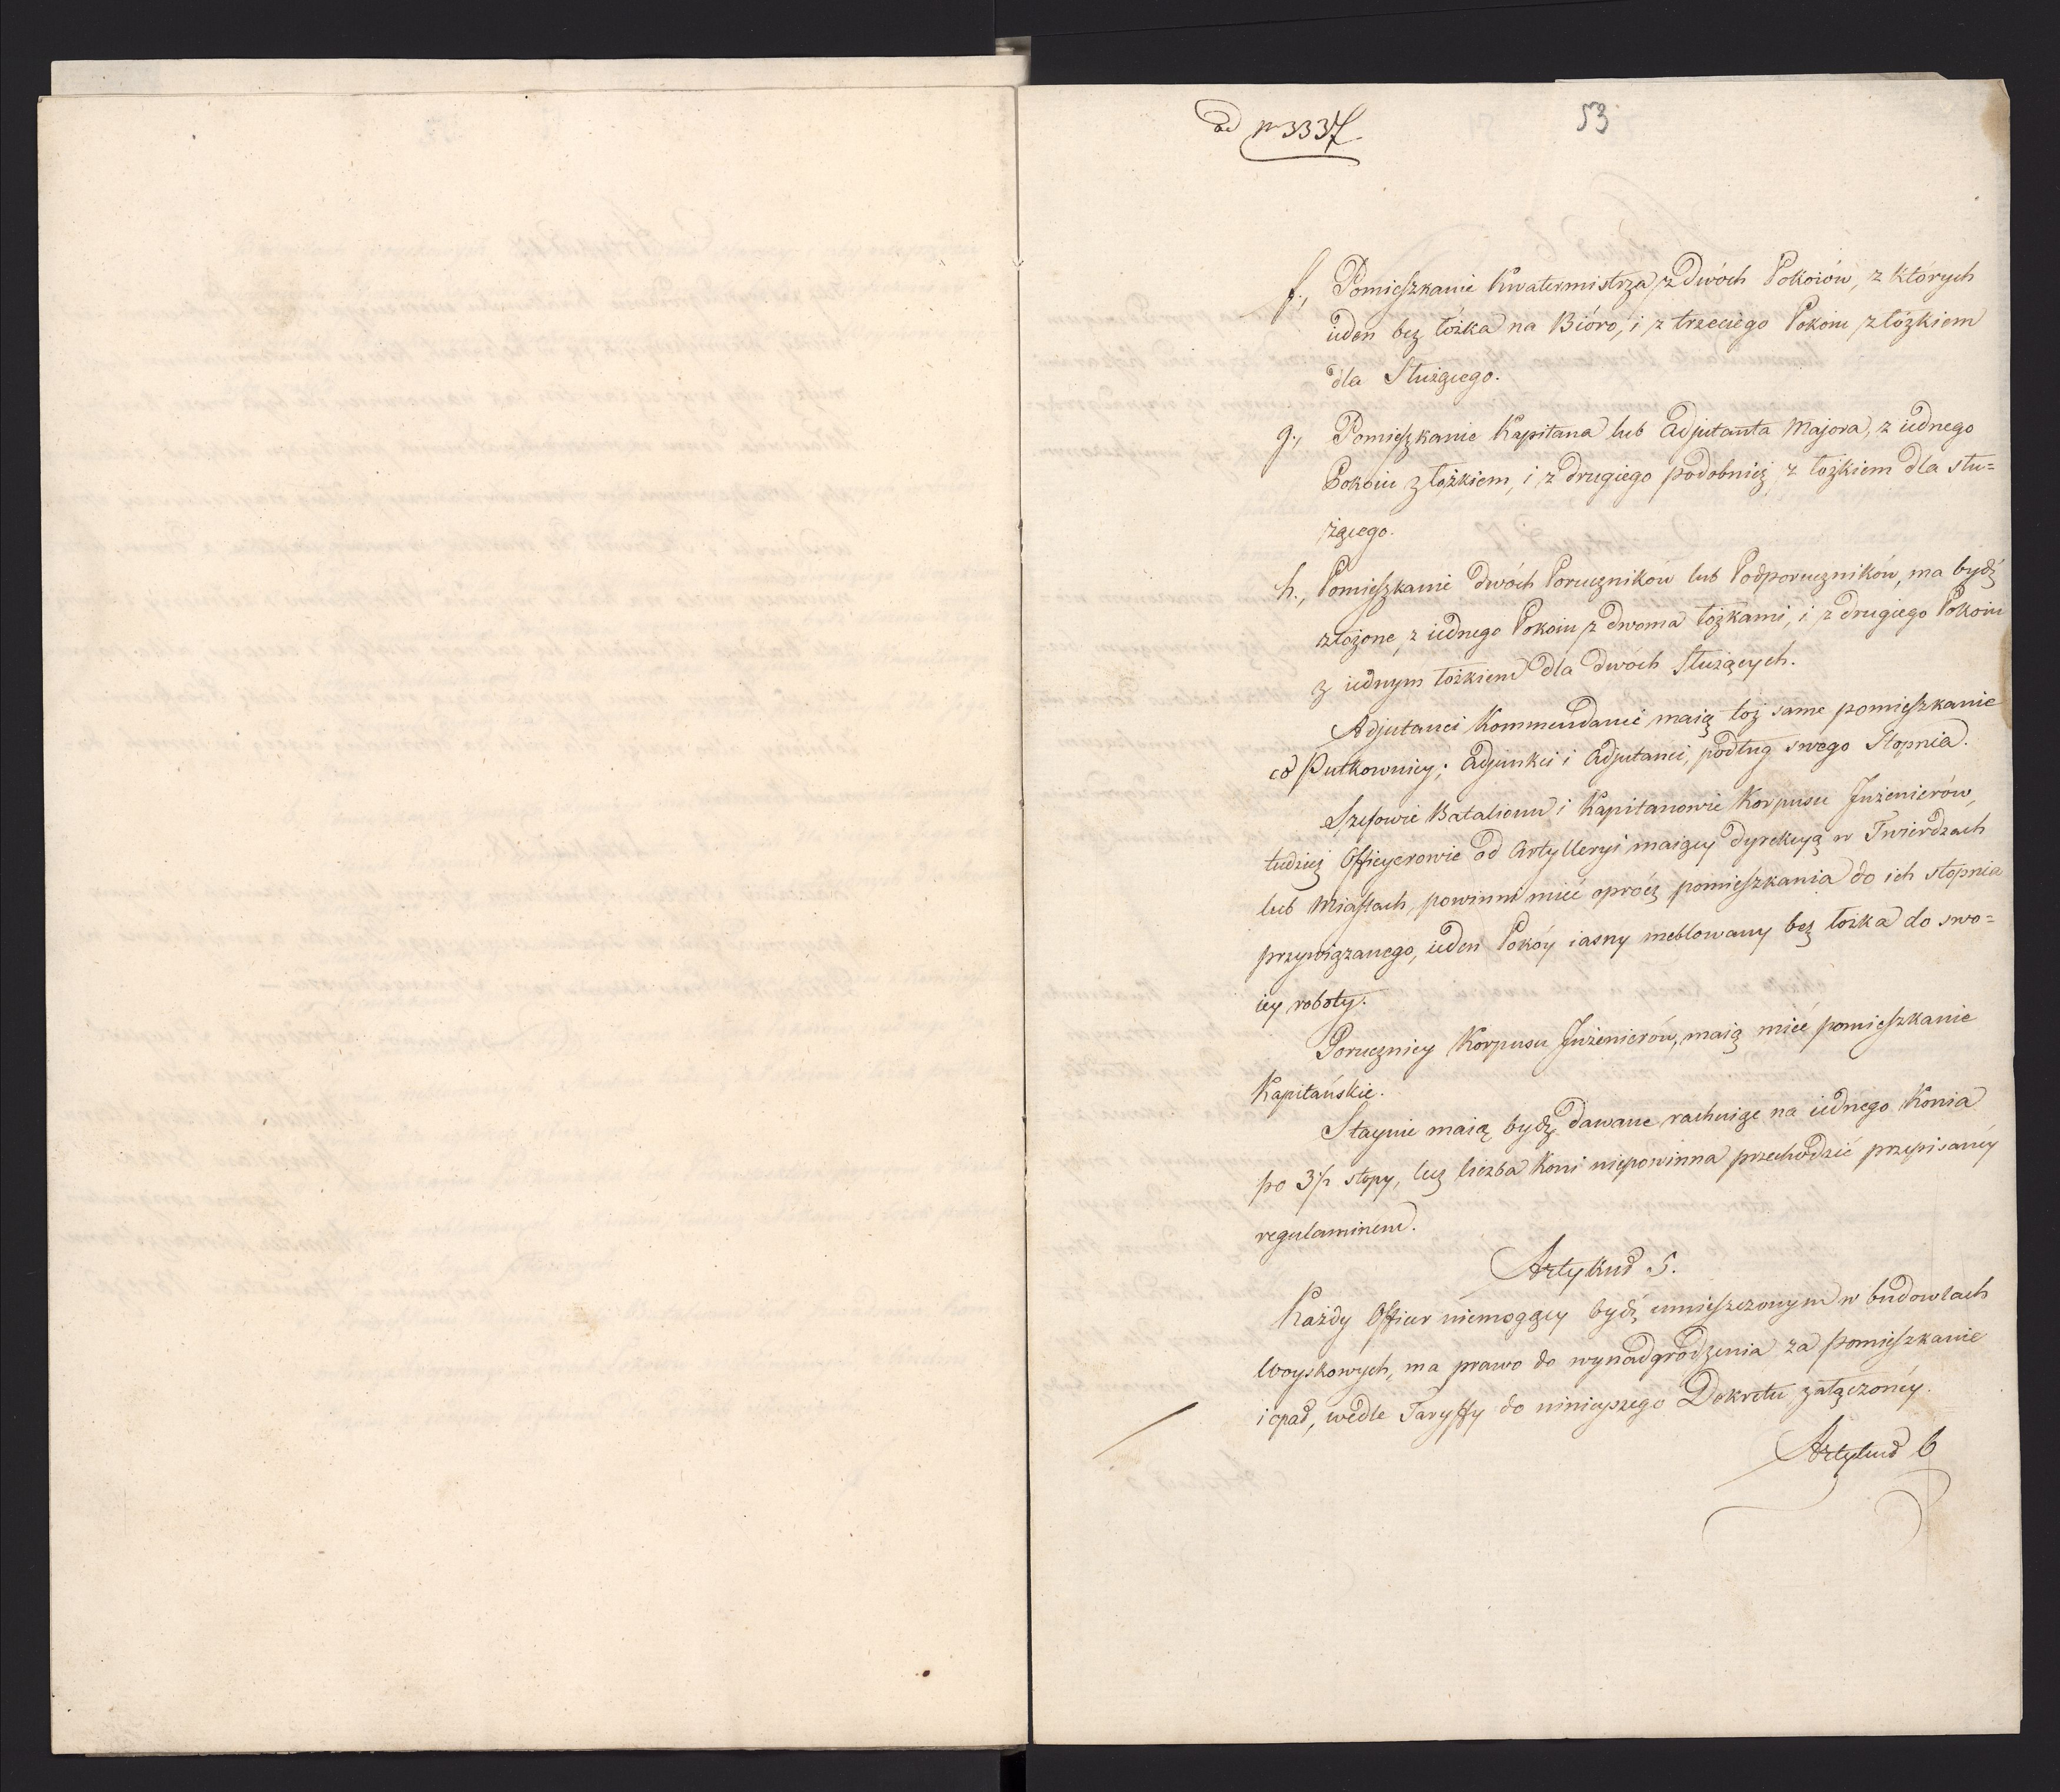 ad nr 3337.
53
f., Pomieszkanie Kwatermistrza, z dwóch Pokoiów, z których
ieden bez łóżka na Bióro, i z trzeciego Pokoiu z łóżkiem
dla Służącego.
g., Pomieszkanie Kapitana lub Adjutanta Majora, z iednego
Pokoiu z łóżkiem, i z drugiego podobnież z łóżkiem dla słu=
żącego.
h., Pomieszkanie dwóch Poruczników lub Podporuczników, ma bydź
złożone, z iednego Pokoiu z dwoma łóżkami, i z drugiego Pokoiu
z iednym łóżkiem dla dwóch Służących.
Adjutanci Kommendanci maią toż same pomieszkanie
co Pułkownicy; Adjunkci i Adjutanci, podług swego Stopnia.
Szefowie Batalionu i Kapitanowie Korpusu Jnżenierów,
tudzież Officyerowie od Artylleryi maiący dyrekcyą w Twierdzach
lub Miastach, powinni mieć oprócz pomieszkania do ich stopnia
przywiązanego, ieden Pokóy iasny meblowany bez łóżka do swo=
iey roboty.
Porucznicy Korpusu Jnżenierów, maią mieć pomieszkanie
Kapitańskie.
Staynie maią bydź dawane rachuiąc na iednego Konia
po 3½ stopy, lecz liczba Koni niepowinna przechodzić przepisanéy
regulaminem.
Artykuł 5.
Każdy Officer niemogący bydź umieszczonym w budowlach
Woyskowych, ma prawo do wynadgrodzenia za pomieszkanie
i opał, wedle Taryffy do ninieyszego Dekretu załączonéy.
Artykuł 6